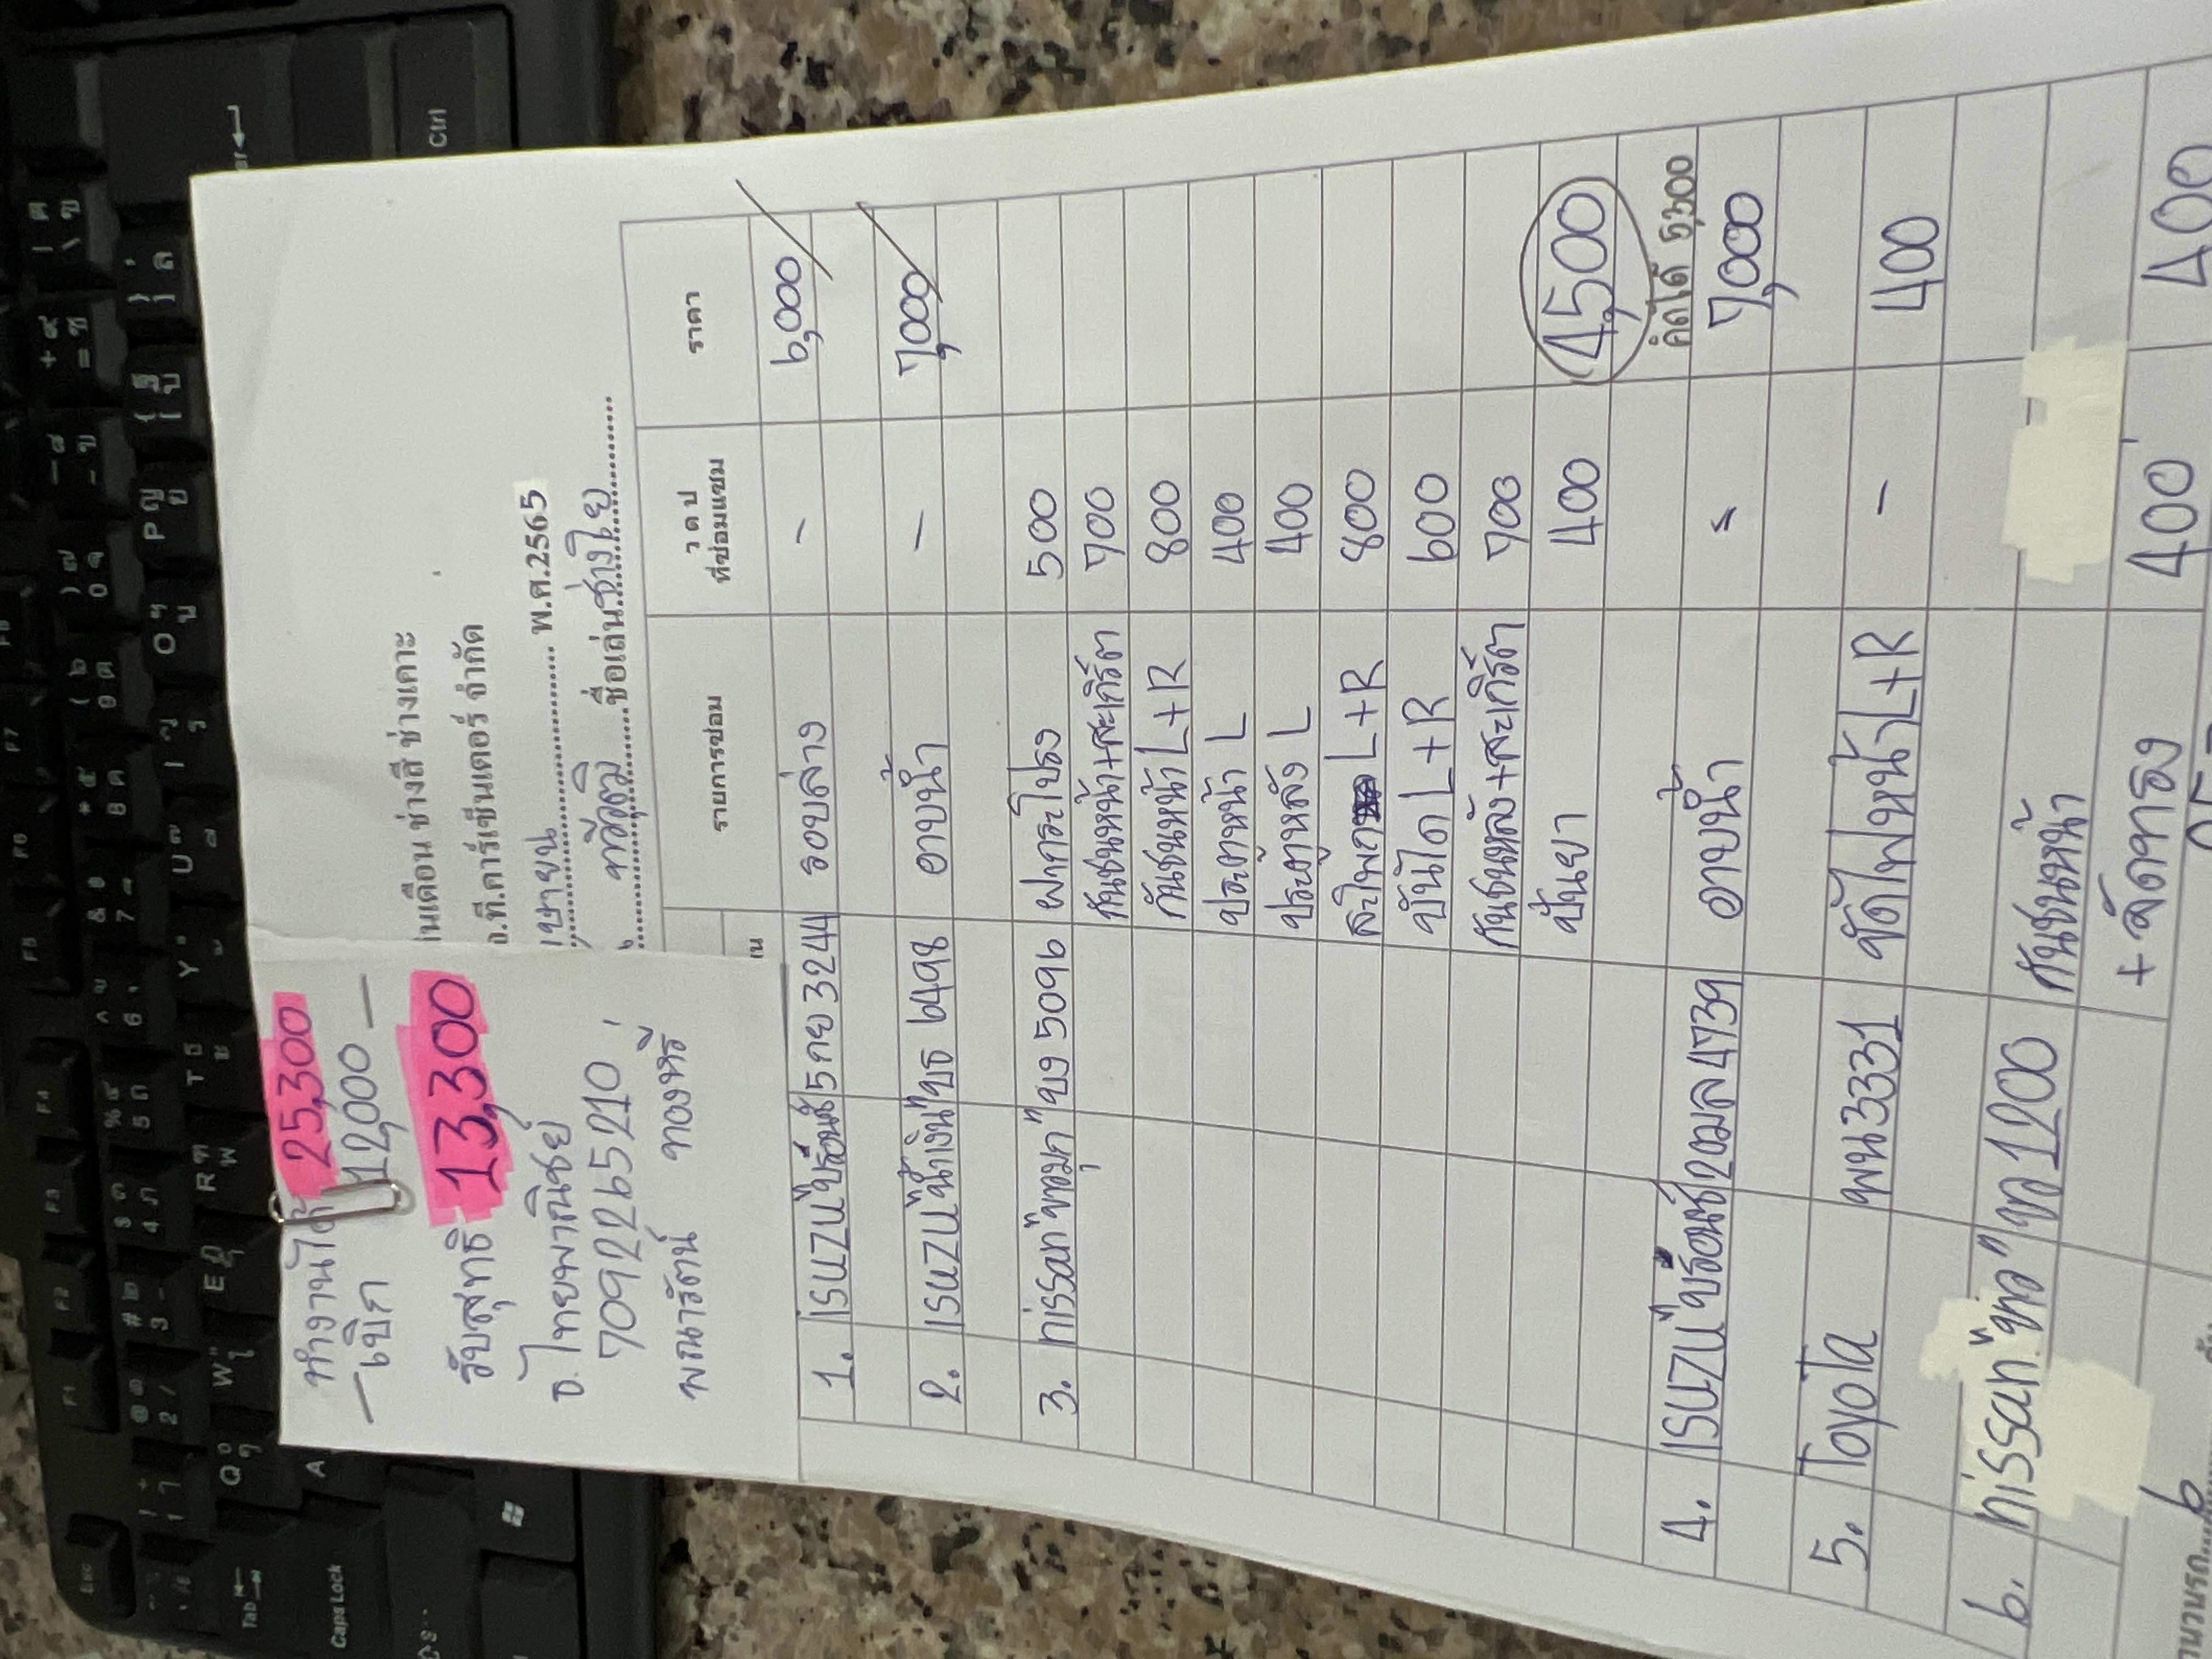 ทำงานได้ 25,300
— เบิก 12,000 —
รับสุทธิ 13,300
ธ.ไทยพาณิชย์
7092265210
พณารัตน์ ทองหรี่
ช่างสี ช่างเคาะ
คาร์เซ็นเตอร์ จำกัด
เมษายน พ.ศ.2565
ทวีวุฒิ ชื่อเล่น ช่างโย
รายการซ่อม ว ด ป ที่ซ่อมแซม ราคา
1. ISUZU "บรอนซ์" 5กย 3244 รอบล่าง – 6,000
2. ISUZU "น้ำเงิน" บธ 6498 อาบน้ำ – 7,000
3. nissan "ขาวมุก" ขง 5096 ฝากระโปรง 500
กันชนหน้า+สะเกิร์ต 700
กันชนหน้า L+R 800
ประตูหน้า L 400
ประตูหลัง L 400
สะโพก L+R 800
บันได L+R 600
กันชนหลัง+สะเกิร์ต 700
ปั่นยา 400 4,500
คิดได้ 5,300
4. ISUZU "บรอนซ์" 2ฒล 4739 อาบน้ำ – 7,000
5. Toyota พน 3331 ขัดไฟหน้า L+R – 400
6. nissan "ขาว" ขก 1200 กันชนหน้า
+ลัดทาลง 400 400